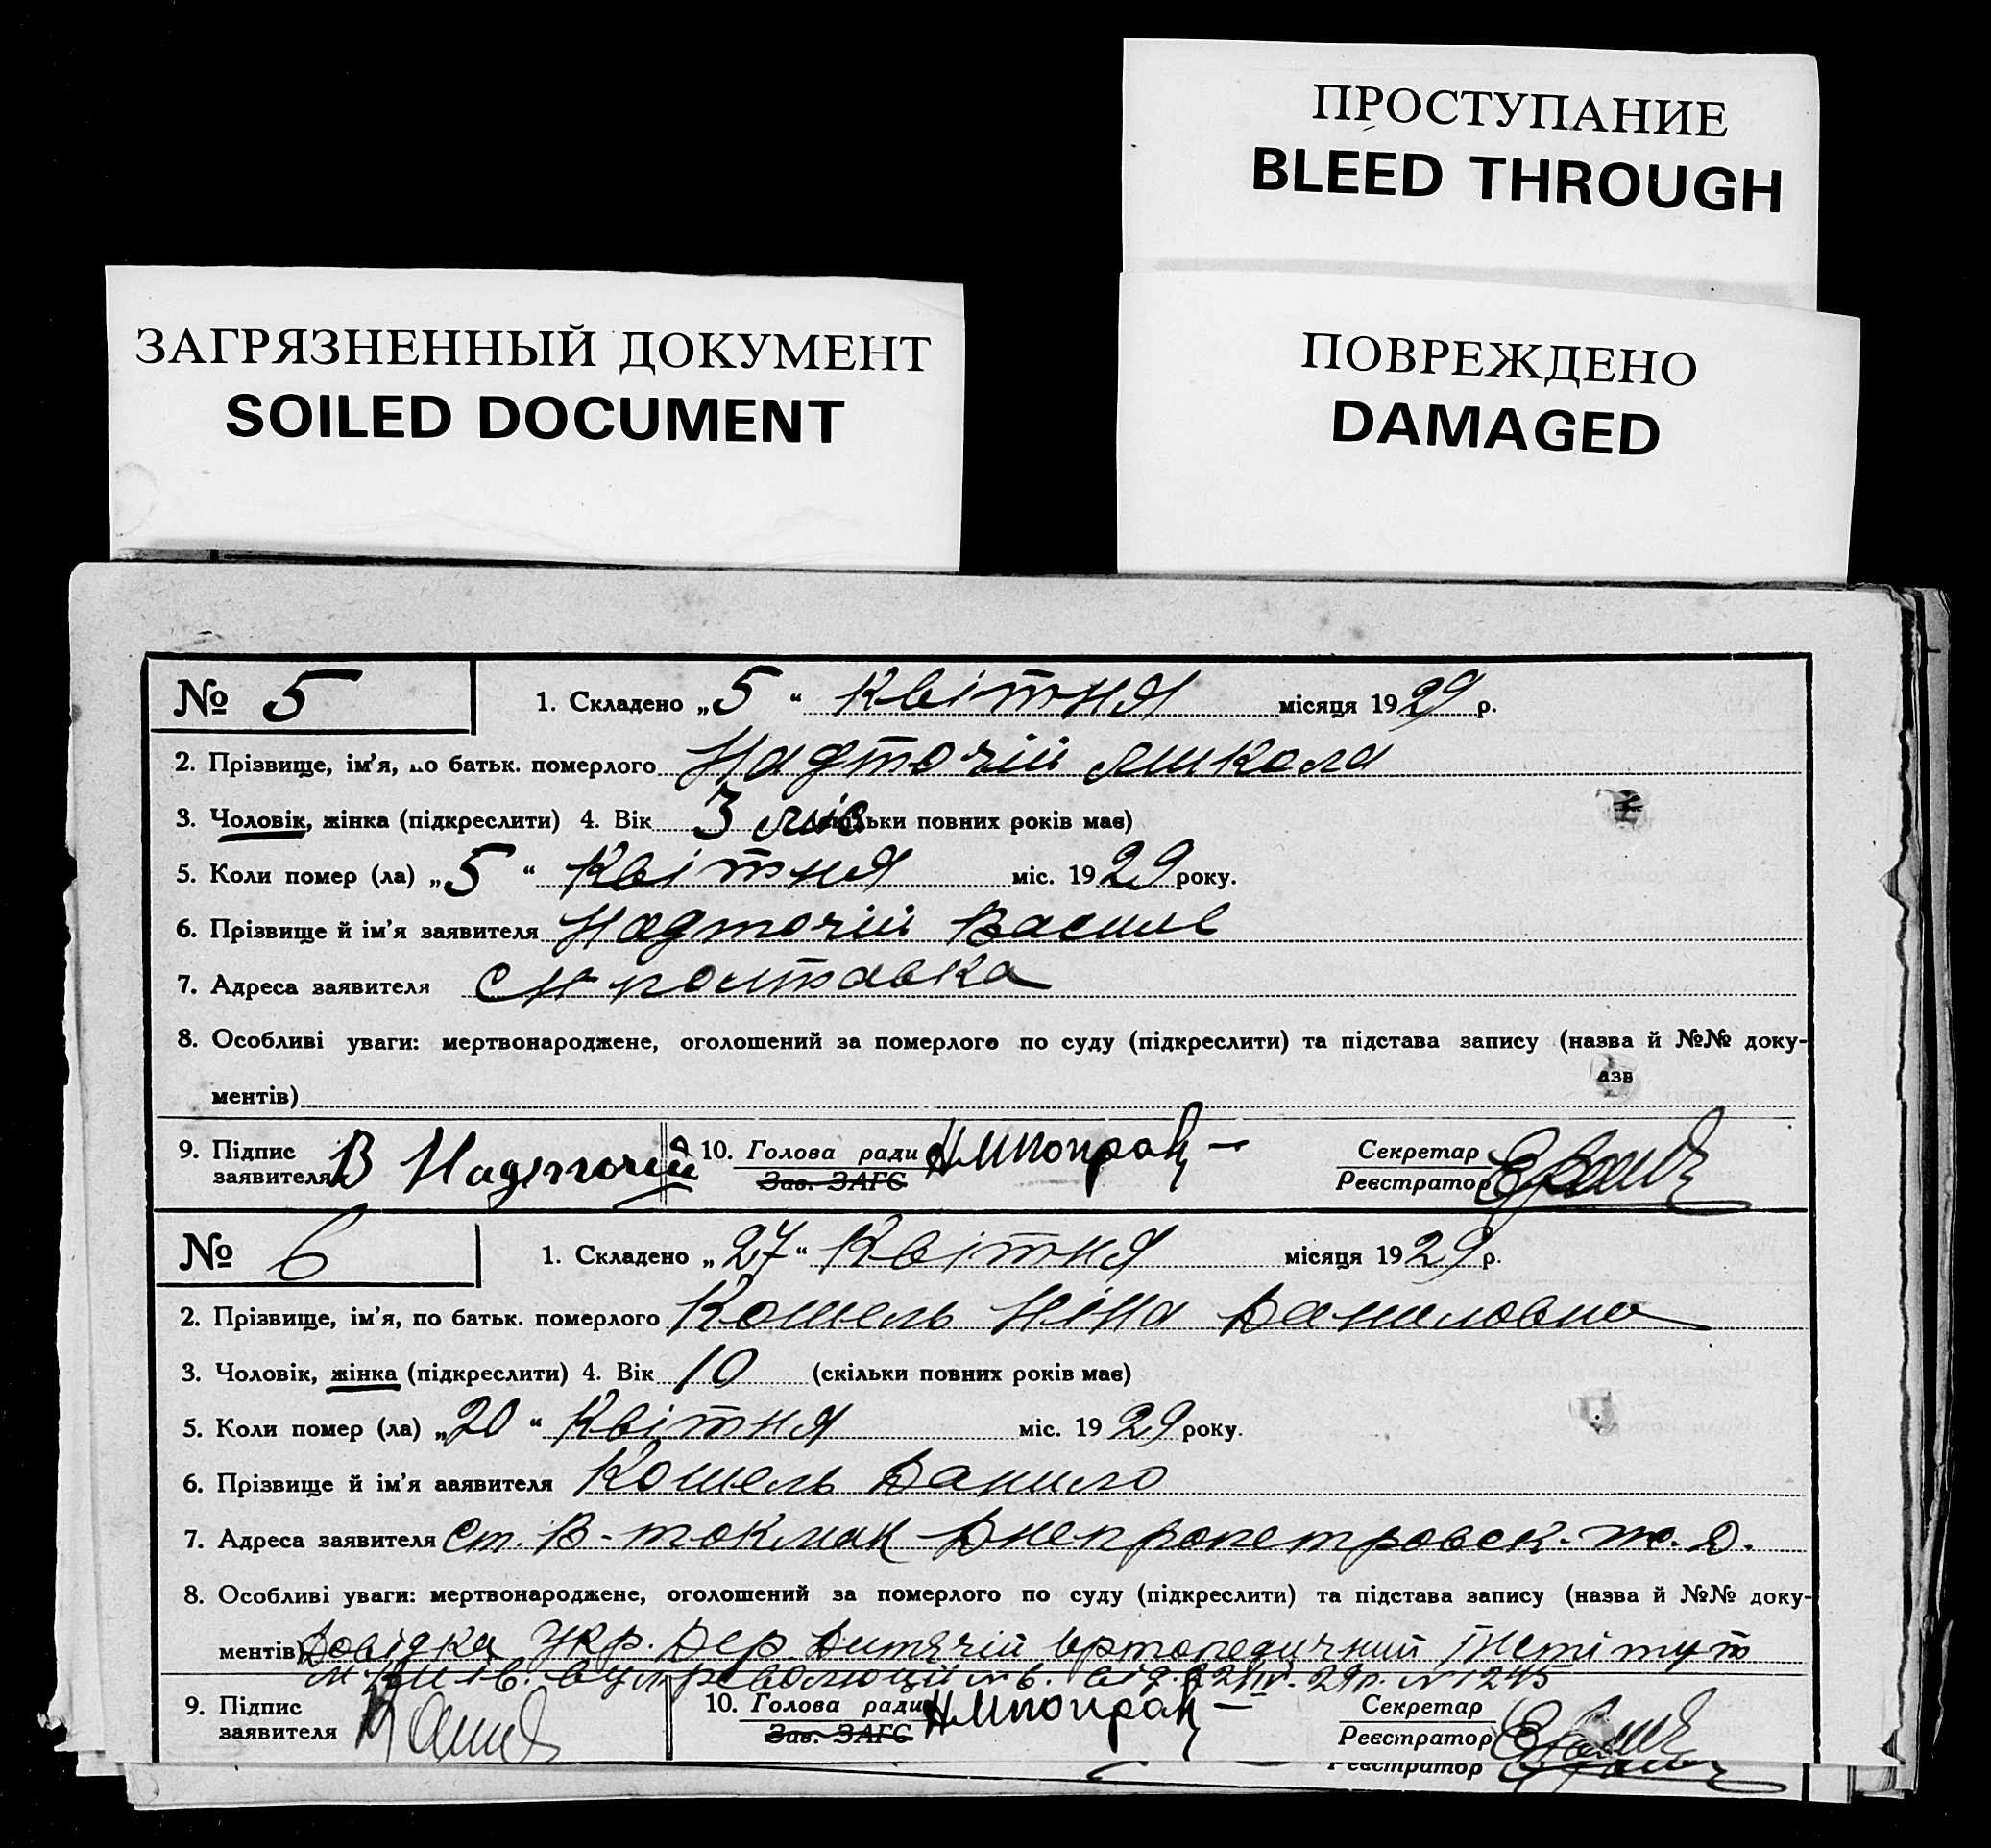 ПРОСТУПАНИЕ
BLEED THROUGH
ЗАГРЯЗНЕННЫЙ ДОКУМЕНТ
SOILED DOCUMENT
ПОВРЕЖДЕНО
DAMAGED
№ 5
1. Складено „5“ Квітня місяця 1929 р.
2. Прізвище, ім'я, по батьк. померлого Надточій Микола
3. Чоловік, жінка (підкреслити) 4. Вік 3 міс (скільки повних років має)
5. Коли помер (ла) „5“ Квітня міс. 1929 року.
6. Прізвище й ім'я заявителя Надточій Василь
7. Адреса заявителя с Н Полтавка
8. Особливі уваги: мертвонароджене, оголошений за померлого по суду (підкреслити) та підстава запису (назва й №№ доку-
азв
ментів)
9. Підпис заявителя В Надточій
10. Голова ради
Зав. ЗАГС
Секретар
Реєстратор
№ 6
1. Складено „27“ Квітня місяця 1929 р.
2. Прізвище, ім'я, по батьк. померлого Кошель Ніна Даниловна
3. Чоловік, жінка (підкреслити) 4. Вік 10 (скільки повних років має)
5. Коли помер (ла) „20“ Квітня міс. 1929 року.
6. Прізвище й ім'я ааявителя Кошель Данило
7. Адреса заявителя Ст. В-токмак Днепропетровск.
8. Особливі уваги: мертвонароджене, оголошений за померлого по суду (підкреслити) та підстава запису (назва й №№ доку-
ментів) Довідка Укр. Дер. Дитячій ортопедичний Інстітут
м. Київ. вул революції № 6. від 29р. № 1245
9. Підпис заявителя
10. Голова ради
Зав. ЗАГС
Секретар
Реєстратор
Реєстратор